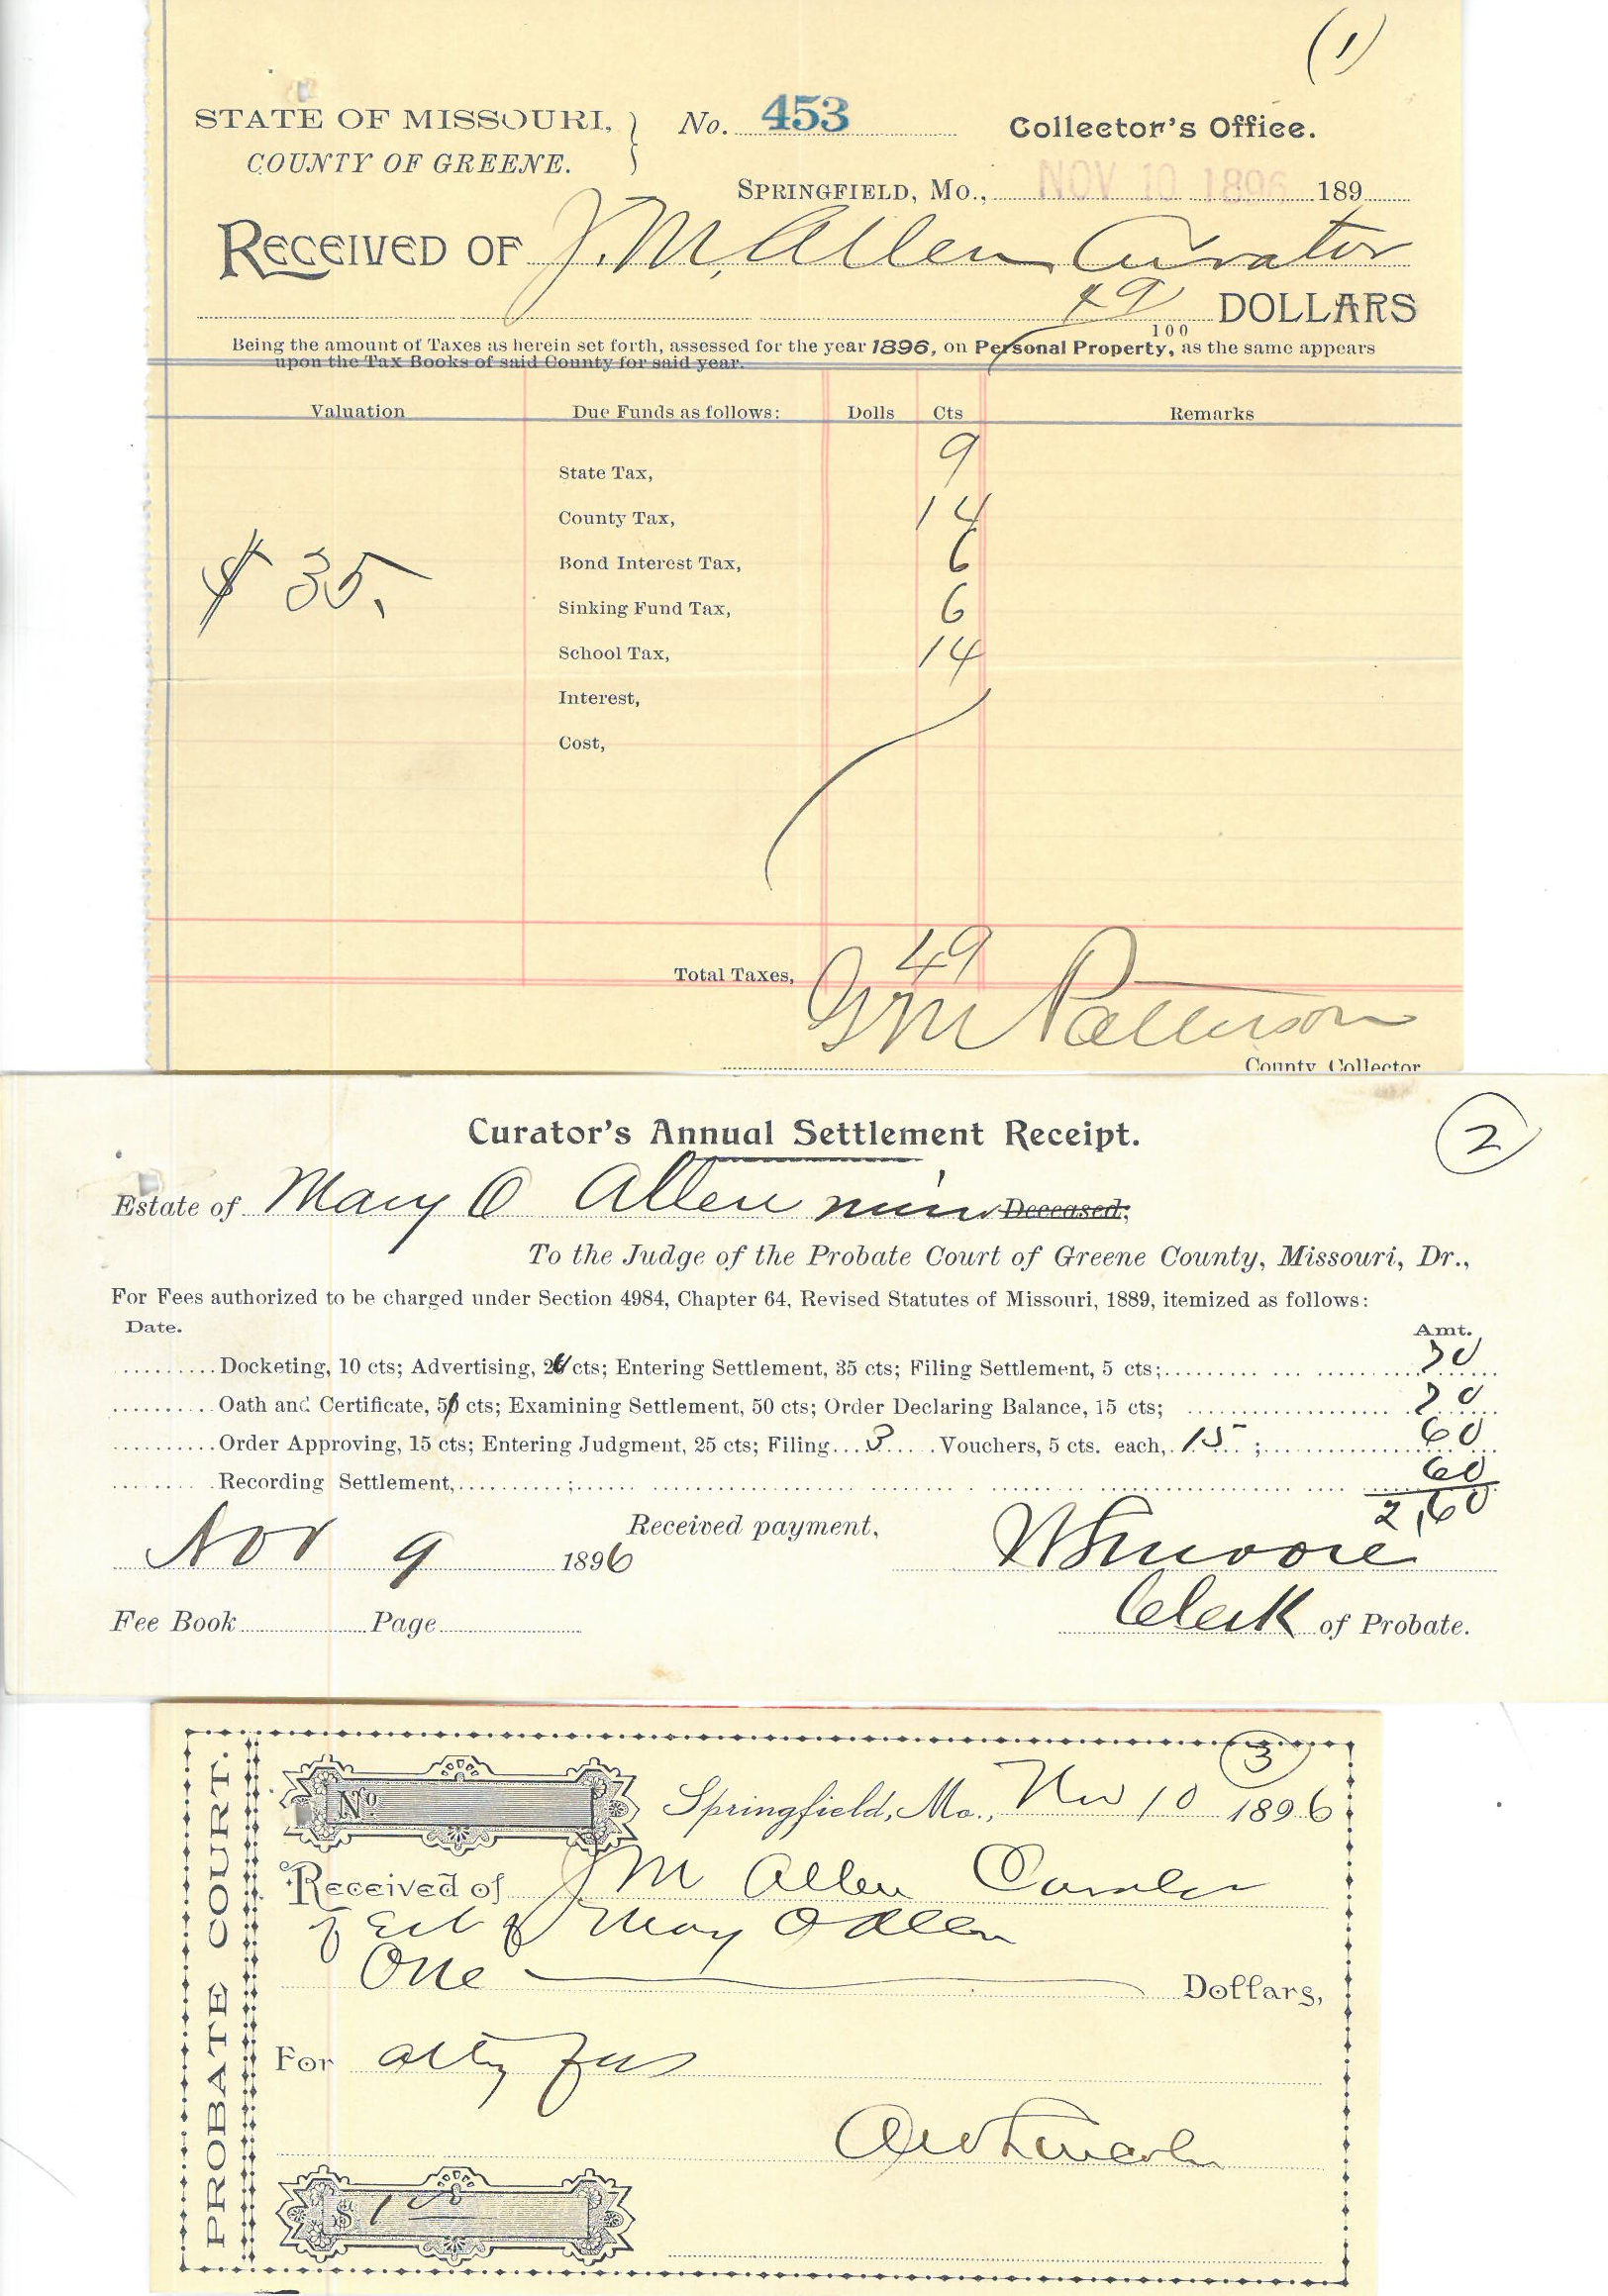 (1)
STATE OF MISSOURI,
COUNTY OF GREENE.
No. 453
Collector's Office.
SPRINGFIELD, Mo., NOV 10 1896 189
RECEIVED OF J. M. Allen Curator
49/100 DOLLARS
Being the amount of Taxes as herein set forth, assessed for the year 1896, on Personal Property, as the same appears
upon the Tax Books of said County for said year.
Valuation Due Funds as follows: Dolls Cts Remarks
State Tax, 9
County Tax, 14
Bond Interest Tax, 6
$ 35.
Sinking Fund Tax, 6
School Tax, 14
Interest,
Cost,
Total Taxes, 49
G M Patterson
County Collector
2
Curator's Annual Settlement Receipt.
Estate of Mary O Allen minor Deceased,
To the Judge of the Probate Court of Greene County, Missouri, Dr.,
For Fees authorized to be charged under Section 4984, Chapter 64, Revised Statutes of Missouri, 1889, itemized as follows:
Date. Amt.
Docketing, 10 cts; Advertising, 20 cts; Entering Settlement, 35 cts; Filing Settlement, 5 cts; 70
Oath and Certificate, 5 cts; Examining Settlement, 50 cts; Order Declaring Balance, 15 cts; 70
Order Approving, 15 cts; Entering Judgment, 25 cts; Filing 3 Vouchers, 5 cts. each, 15 ; 60
Recording Settlement, ; 60
2,60
Received payment,
Nov 9 1896 W Moore
Clerk of Probate.
Fee Book Page
3
PROBATE COURT.
No
Springfield, Mo., Nov 10 1896
Received of J M Allen Curator
of Est of Mary O Allen
One Dollars,
For atty fees
A W Lincoln
$ 1 00